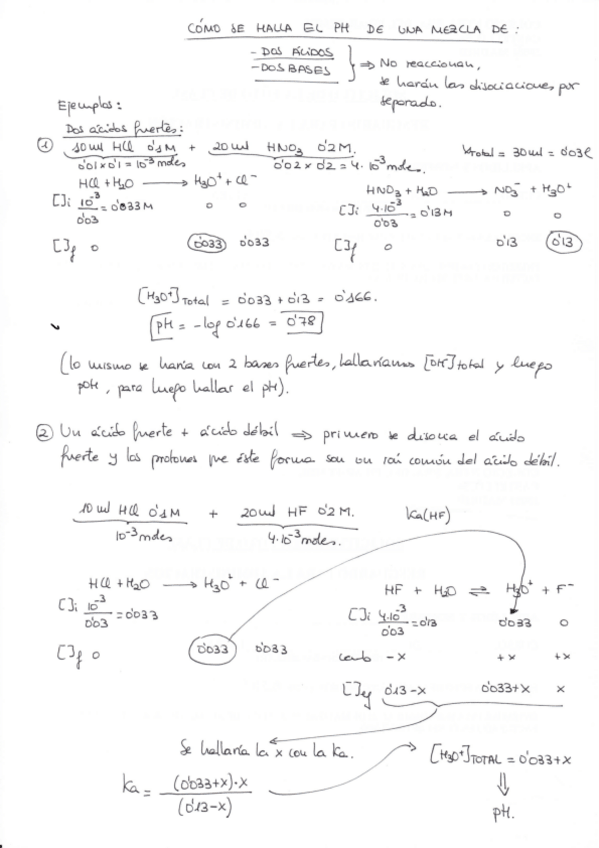 CÓMO SE HALLA EL PH DE UNA MEZCLA DE:
- DOS ÁCIDOS
- DOS BASES
⇒ No reaccionan,
se harán las disociaciones por
separado.
Ejemplos:
Dos ácidos fuertes:
① 10 ml HCl 0'1M + 20 ml HNO₃ 0'2M. Vtotal = 30 ml = 0'03 l
0'01 x 0'1 = 10⁻³ moles 0'02 x 0'2 = 4·10⁻³ moles.
HCl + H₂O ⟶ H₃O⁺ + Cl⁻ HNO₃ + H₂O ⟶ NO₃⁻ + H₃O⁺
[]i 10⁻³/0'03 = 0'033M 0 0 []i 4·10⁻³/0'03 = 0'13M 0 0
[]f 0 0'033 0'033 []f 0 0'13 0'13
[H₃O⁺]Total = 0'033 + 0'13 = 0'166.
pH = -log 0'166 = 0'78
(lo mismo se haría con 2 bases fuertes, hallaríamos [OH⁻]total y luego
pOH, para luego hallar el pH).
② Un ácido fuerte + ácido débil ⇒ primero se disocia el ácido
fuerte y los protones que éste forma son un ión común del ácido débil.
10 ml HCl 0'1M + 20 ml HF 0'2M. Ka(HF)
10⁻³ moles 4·10⁻³ moles.
HCl + H₂O ⟶ H₃O⁺ + Cl⁻ HF + H₂O ⇌ H₃O⁺ + F⁻
[]i 10⁻³/0'03 = 0'033 []i 4·10⁻³/0'03 = 0'13 0'033 0
[]f 0 0'033 0'033 camb -x +x +x
[]eq 0'13-x 0'033+x x
Se hallaría la x con la Ka. [H₃O⁺]TOTAL = 0'033+x
Ka = (0'033+x)·x/(0'13-x) ⇓
pH.